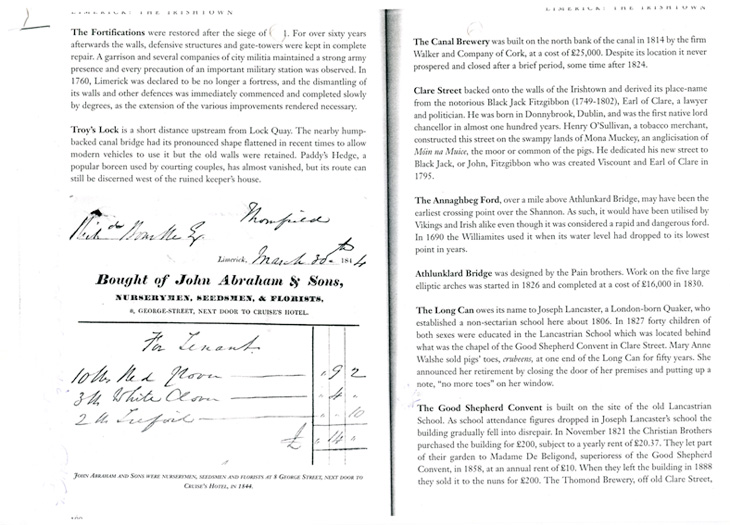 LIMERICK: THE IRISHTOWN
The Fortifications were restored after the siege of ( ). For over sixty years
afterwards the walls, defensive structures and gate-towers were kept in complete
repair. A garrison and several companies of city militia maintained a strong army
presence and every precaution of an important military station was observed. In
1760, Limerick was declared to be no longer a fortress, and the dismantling of
its walls and other defences was immediately commenced and completed slowly
by degrees, as the extension of the various improvements rendered necessary.
Troy's Lock is a short distance upstream from Lock Quay. The nearby hump-
backed canal bridge had its pronounced shape flattened in recent times to allow
modern vehicles to use it but the old walls were retained. Paddy's Hedge, a
popular boreen used by courting couples, has almost vanished, but its route can
still be discerned west of the ruined keeper's house.
Bourke Esq.
Limerick, March 30th 1844
Bought of John Abraham & Sons,
NURSERYMEN, SEEDSMEN, & FLORISTS,
8, GEORGE-STREET, NEXT DOOR TO CRUISE'S HOTEL.
For Tenant
10 lbs Red Clover 9 2
3 lb White Clover 4
2 lb Trefoil 10
£ 14
JOHN ABRAHAM AND SONS WERE NURSERYMEN, SEEDSMEN AND FLORISTS AT 8 GEORGE STREET, NEXT DOOR TO
CRUISE'S HOTEL, IN 1844.
LIMERICK: THE IRISHTOWN
The Canal Brewery was built on the north bank of the canal in 1814 by the firm
Walker and Company of Cork, at a cost of £25,000. Despite its location it never
prospered and closed after a brief period, some time after 1824.
Clare Street backed onto the walls of the Irishtown and derived its place-name
from the notorious Black Jack Fitzgibbon (1749-1802), Earl of Clare, a lawyer and
politician. He was born in Donnybrook, Dublin, and was the first native lord
chancellor in almost one hundred years. Henry O'Sullivan, a tobacco merchant,
constructed this street on the swampy lands of Mona Muckey, an anglicisation of
Móin na Muice, the moor or common of the pigs. He dedicated his new street to
Black Jack, or John, Fitzgibbon who was created Viscount and Earl of Clare in
1795.
The Annaghbeg Ford, over a mile above Athlunkard Bridge, may have been the
earliest crossing point over the Shannon. As such, it would have been utilised by
Vikings and Irish alike even though it was considered a rapid and dangerous ford.
In 1690 the Williamites used it when its water level had dropped to its lowest
point in years.
Athlunklard Bridge was designed by the Pain brothers. Work on the five large
elliptic arches was started in 1826 and completed at a cost of £16,000 in 1830.
The Long Can owes its name to Joseph Lancaster, a London-born Quaker, who
established a non-sectarian school here about 1806. In 1827 forty children of
both sexes were educated in the Lancastrian School which was located behind
what was the chapel of the Good Shepherd Convent in Clare Street. Mary Anne
Walshe sold pigs' toes, crubeens, at one end of the Long Can for fifty years. She
announced her retirement by closing the door of her premises and putting up a
note, "no more toes" on her window.
The Good Shepherd Convent is built on the site of the old Lancastrian
School. As school attendance figures dropped in Joseph Lancaster's school the
building gradually fell into disrepair. In November 1821 the Christian Brothers
purchased the building for £200, subject to a yearly rent of £20.37. They let part
of their garden to Madame De Beligond, superioress of the Good Shepherd
Convent, in 1858, at an annual rent of £10. When they left the building in 1888
they sold it to the nuns for £200. The Thomond Brewery, off old Clare Street,